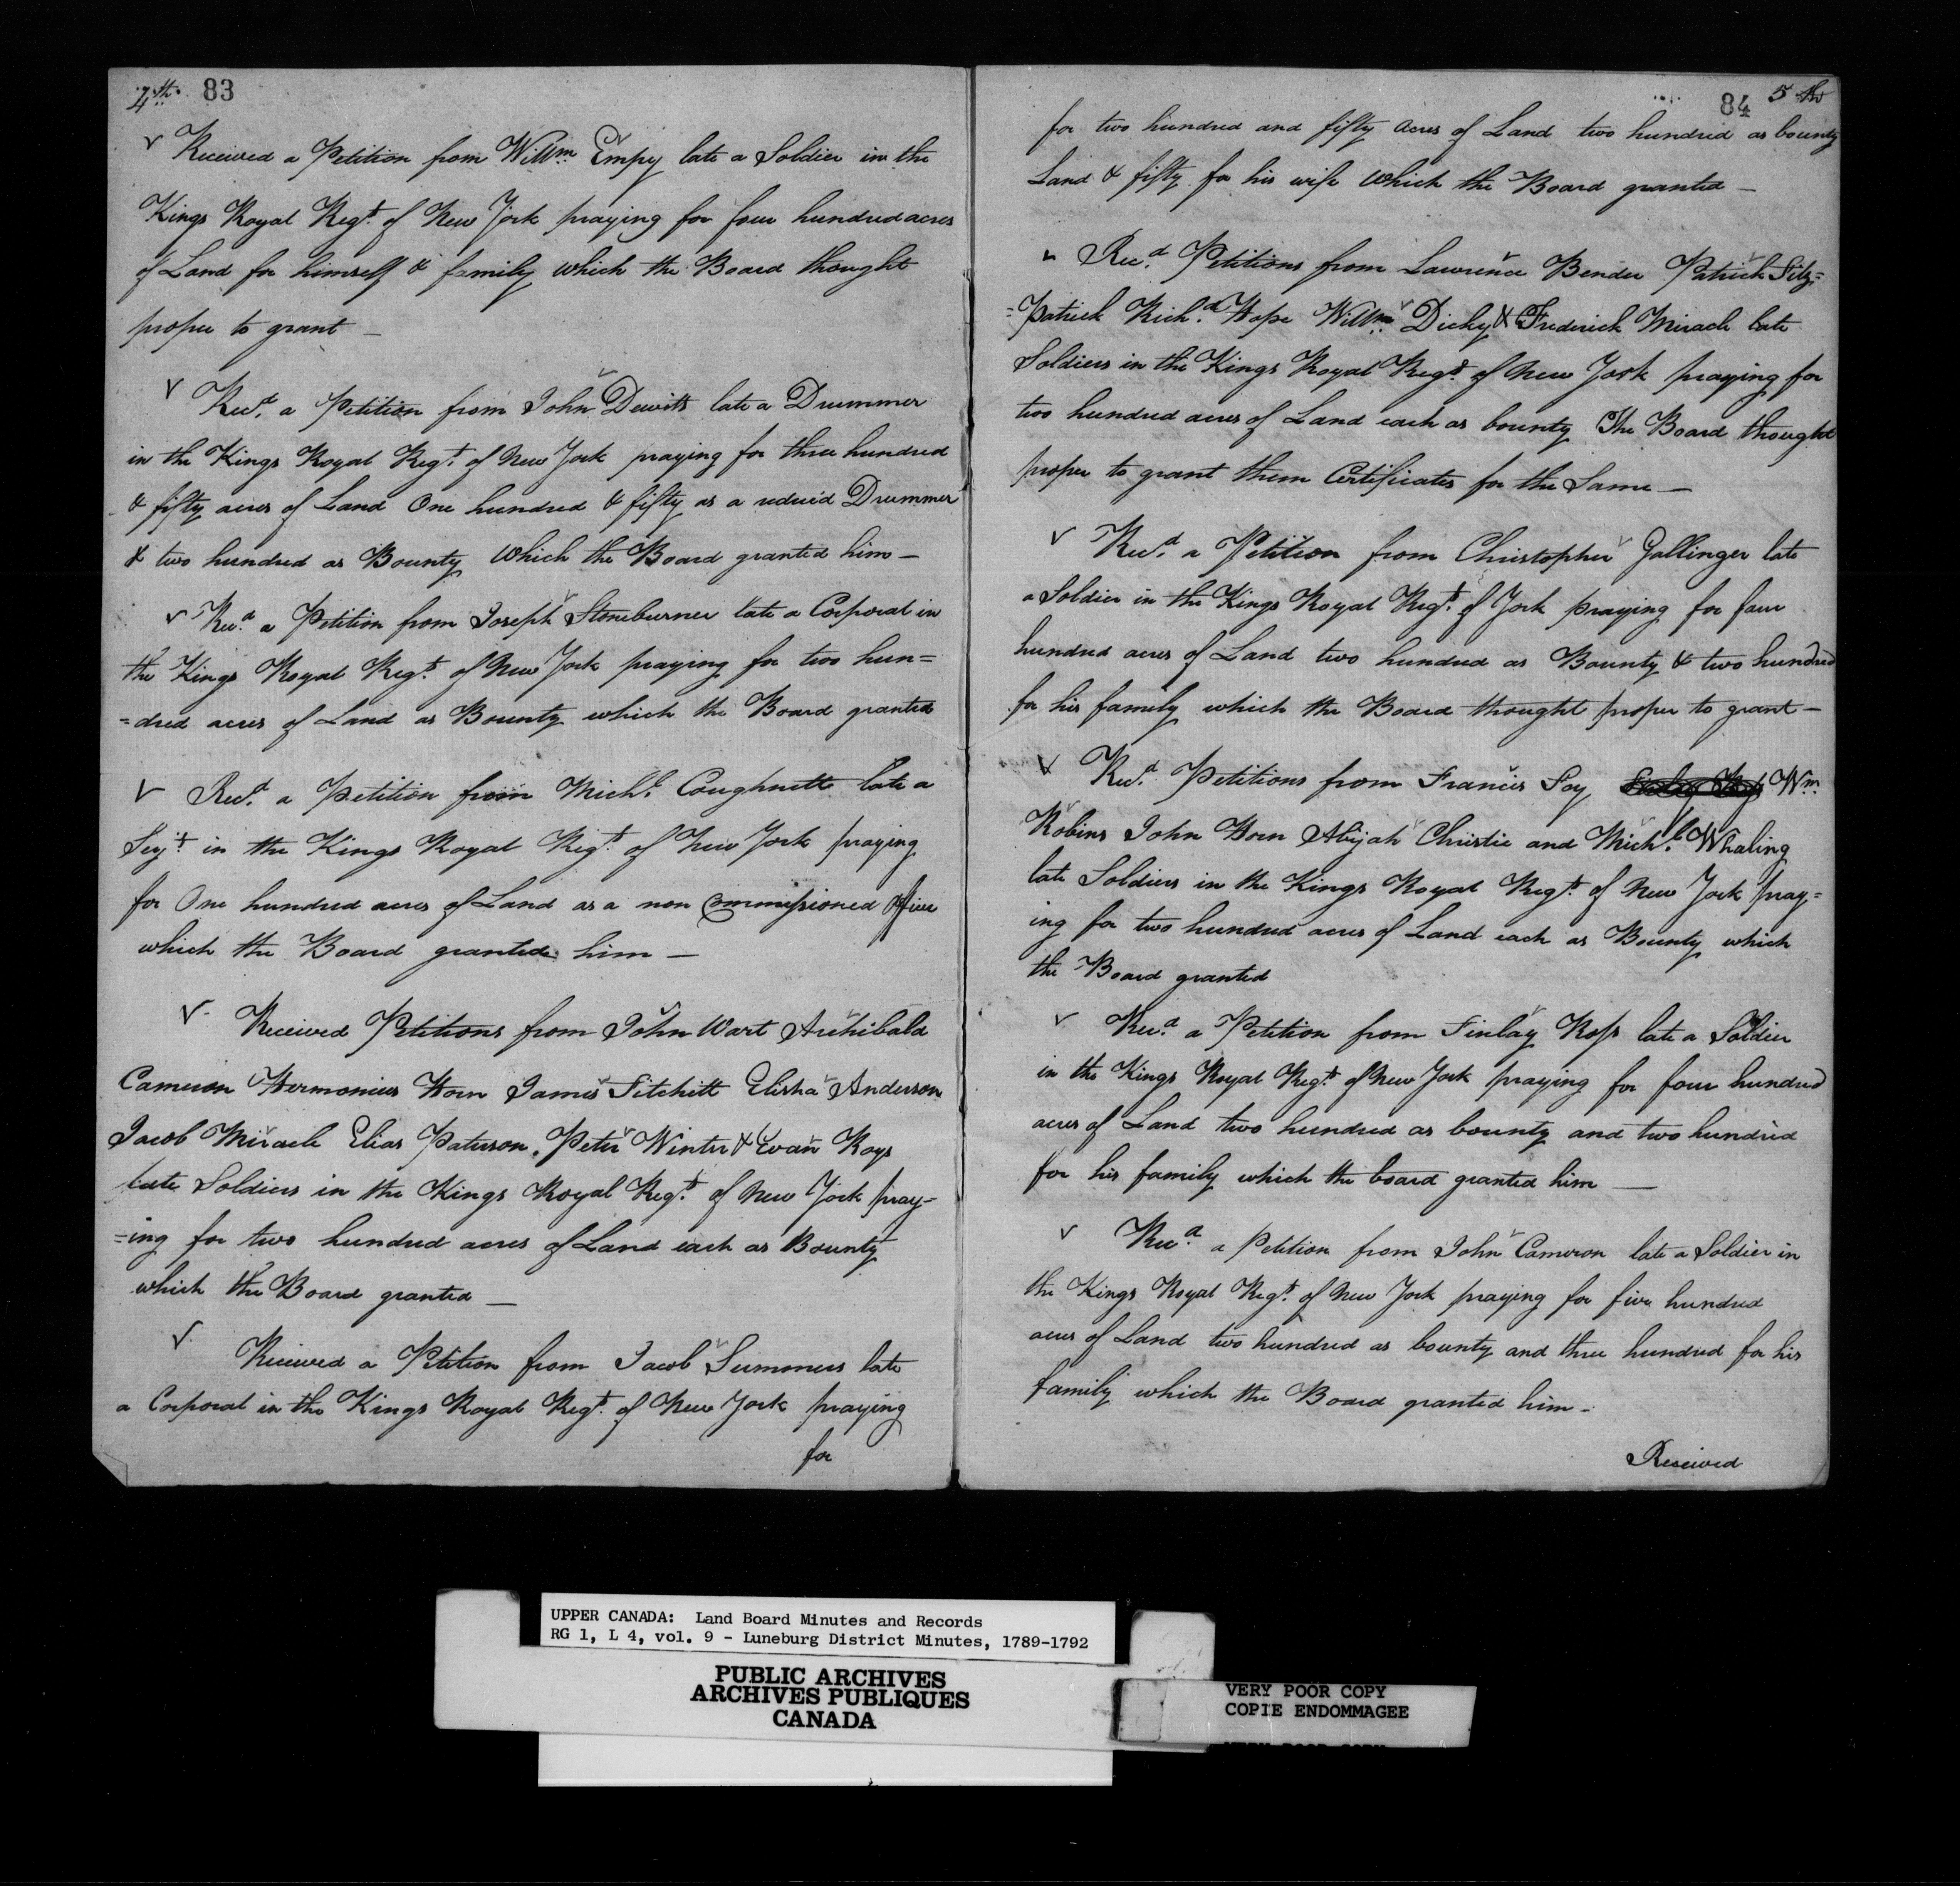 4th. 83
Received a Petition from Willm Empy late a Soldier in the
Kings Royal Regt. of New York praying for four hundred acres
of Land for himself & family which the Board thought
proper to grant —
Recd. a Petition from John Dewitt late a Drummer
in the Kings Royal Regt. of New York praying for three hundred
& fifty acres of Land One hundred & fifty as a reduc'd Drummer
& two hundred as Bounty which the Board granted him —
Recd. a Petition from Joseph Stoneburner late a Corporal in
the Kings Royal Regt. of New York praying for two hun=
=dred acres of Land as Bounty which the Board granted
Recd. a Petition from Michl. Coughnett late a
Sejt. in the Kings Royal Regt. of New York praying
for One hundred acres of Land as a non Commissioned Officer
which the Board granted him —
Received Petitions from John Wart Archibald
Cameron Hermonius Horn James Fitchitt Elisha Anderson
Jacob Miracle Elias Paterson, Peter Winter & Evan Roys
late Soldiers in the Kings Royal Regt. of New York pray=
=ing for two hundred acres of Land each as Bounty
which the Board granted —
Received a Petition from Jacob Summers late
a Corporal in the Kings Royal Regt. of New York praying
for
84 5th
for two hundred and fifty acres of Land two hundred as bounty
Land & fifty for his wife which the Board granted —
Recd. Petitions from Lawrence Bender Patrick Fitz=
=Patrick Richd. Hope Willm. Dicky & Frederick Miracle late
Soldiers in the Kings Royal Regt. of New York praying for
two hundred acres of Land each as bounty The Board thought
proper to grant them Certificates for the Same —
Recd. a Petition from Christopher Gallinger late
a Soldier in the Kings Royal Regt. of York praying for four
hundred acres of Land two hundred as Bounty & two hundred
for his family which the Board thought proper to grant —
Recd. Petitions from Francis Foy Wm.
Robins John Horn Abijah Christie and Michl. Whaling
late Soldiers in the Kings Royal Regt. of New York pray=
ing for two hundred acres of Land each as Bounty which
the Board granted
Recd. a Petition from Finlay Ross late a Soldier
in the Kings Royal Regt. of New York praying for four hundred
acres of Land two hundred as bounty and two hundred
for his family which the board granted him —
Recd. a Petition from John Cameron late a Soldier in
the Kings Royal Regt. of New York praying for five hundred
acres of Land two hundred as bounty and three hundred for his
family which the Board granted him —
Received
UPPER CANADA: Land Board Minutes and Records
RG 1, L 4, vol. 9 - Luneburg District Minutes, 1789-1792
PUBLIC ARCHIVES
ARCHIVES PUBLIQUES
CANADA
VERY POOR COPY
COPIE ENDOMMAGEE